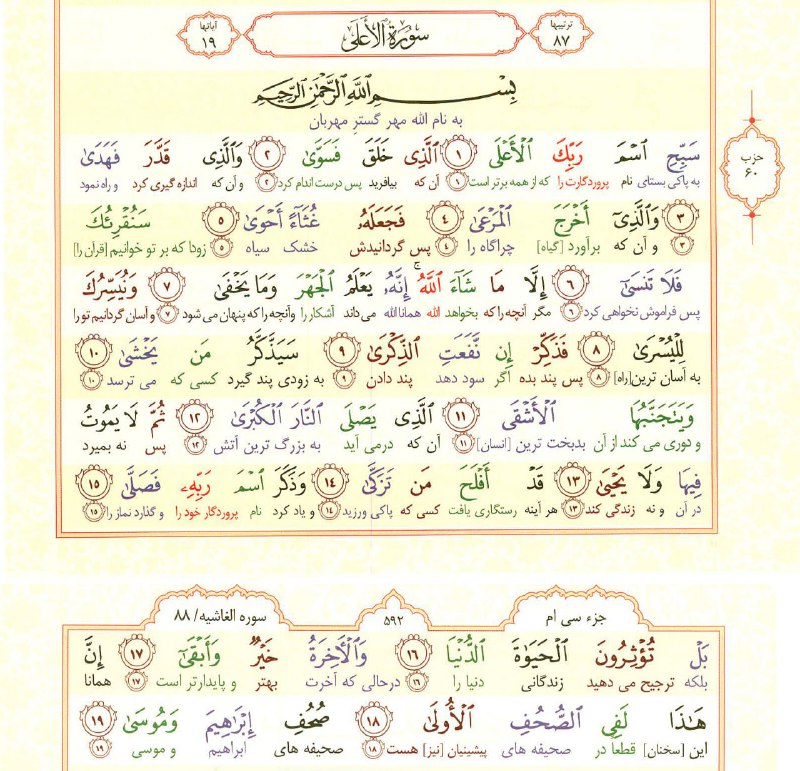 ترتیبها ٨٧
سورة الأعلى
آیاتها ١٩
بِسْمِ اللَّهِ الرَّحْمَٰنِ الرَّحِيمِ
به نام الله مهر گستر مهربان
سَبِّحِ ٱسْمَ رَبِّكَ ٱلْأَعْلَى ١ ٱلَّذِى خَلَقَ فَسَوَّىٰ ٢ وَٱلَّذِى قَدَّرَ فَهَدَىٰ
به پاکی بستای نام پروردگارت را که از همه برتر است ١ آن که بیافرید پس درست اندام کرد ٢ و آن که اندازه گیری کرد و راه نمود
حزب
۶۰
٣ وَٱلَّذِىٓ أَخْرَجَ ٱلْمَرْعَىٰ ٤ فَجَعَلَهُۥ غُثَآءً أَحْوَىٰ ٥ سَنُقْرِئُكَ
٣ و آن که برآورد [گیاه] چراگاه را ٤ پس گردانیدش خشک سیاه ٥ زودا که بر تو خوانیم [قرآن را]
فَلَا تَنسَىٰٓ ٦ إِلَّا مَا شَآءَ ٱللَّهُ ۚ إِنَّهُۥ يَعْلَمُ ٱلْجَهْرَ وَمَا يَخْفَىٰ ٧ وَنُيَسِّرُكَ
پس فراموش نخواهی کرد ٦ مگر آنچه را که بخواهد الله همانا الله می داند آشکار را وآنچه را که پنهان می شود ٧ و آسان گردانیم تو را
لِلْيُسْرَىٰ ٨ فَذَكِّرْ إِن نَّفَعَتِ ٱلذِّكْرَىٰ ٩ سَيَذَّكَّرُ مَن يَخْشَىٰ ١٠
به آسان ترین [راه] ٨ پس پند بده اگر سود دهد پند دادن ٩ به زودی پند گیرد کسی که می ترسد ١٠
وَيَتَجَنَّبُهَا ٱلْأَشْقَى ١١ ٱلَّذِى يَصْلَى ٱلنَّارَ ٱلْكُبْرَىٰ ١٢ ثُمَّ لَا يَمُوتُ
و دوری می کند از آن بدبخت ترین [انسان] ١١ آن که درمی آید به بزرگ ترین آتش ١٢ پس نه بمیرد
فِيهَا وَلَا يَحْيَىٰ ١٣ قَدْ أَفْلَحَ مَن تَزَكَّىٰ ١٤ وَذَكَرَ ٱسْمَ رَبِّهِۦ فَصَلَّىٰ ١٥
در آن و نه زندگی کند ١٣ هر آینه رستگاری یافت کسی که پاکی ورزید ١٤ و یاد کرد نام پروردگار خود را و گذارد نماز را ١٥
جزء سی ام
۵۹۲
سوره الغاشیه/ ۸۸
بَلْ تُؤْثِرُونَ ٱلْحَيَوٰةَ ٱلدُّنْيَا ١٦ وَٱلْـَٔاخِرَةُ خَيْرٌ وَأَبْقَىٰٓ ١٧ إِنَّ
بلکه ترجیح می دهید زندگانی دنیا را ١٦ درحالی که آخرت بهتر و پایدارتر است ١٧ همانا
هَـٰذَا لَفِى ٱلصُّحُفِ ٱلْأُولَىٰ ١٨ صُحُفِ إِبْرَٰهِيمَ وَمُوسَىٰ ١٩
این [سخنان] قطعا در صحیفه های پیشینیان [نیز] هست ١٨ صحیفه های ابراهیم و موسی ١٩